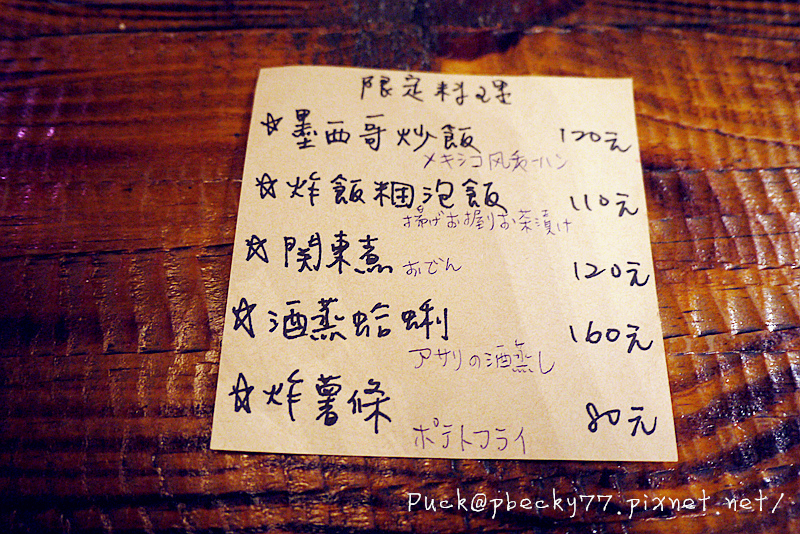 限定料理
☆墨西哥炒飯 120元
メキシコ风炙ーハン
☆炸飯糰泡飯 110元
揚げお握りお茶漬け
☆関東煮 おでん 120元
☆酒蒸蛤蜊 160元
アサリの酒蒸し
☆炸薯條 80元
ポテトフライ
Puck@pbecky77.pixnet.net/